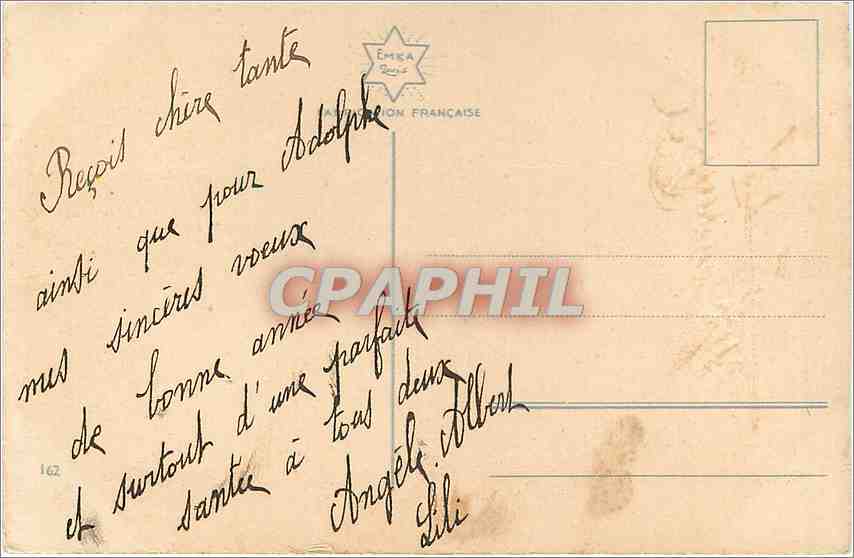 Reçois chère tante
ainsi que pour Adolphe
mes sincères voeux
de bonne année
et surtout d'une parfaite
santée à tous deux
Angèle. Albert
Lili
EMKA
PARIS
FABRICATION FRANÇAISE
CPAPHIL
162